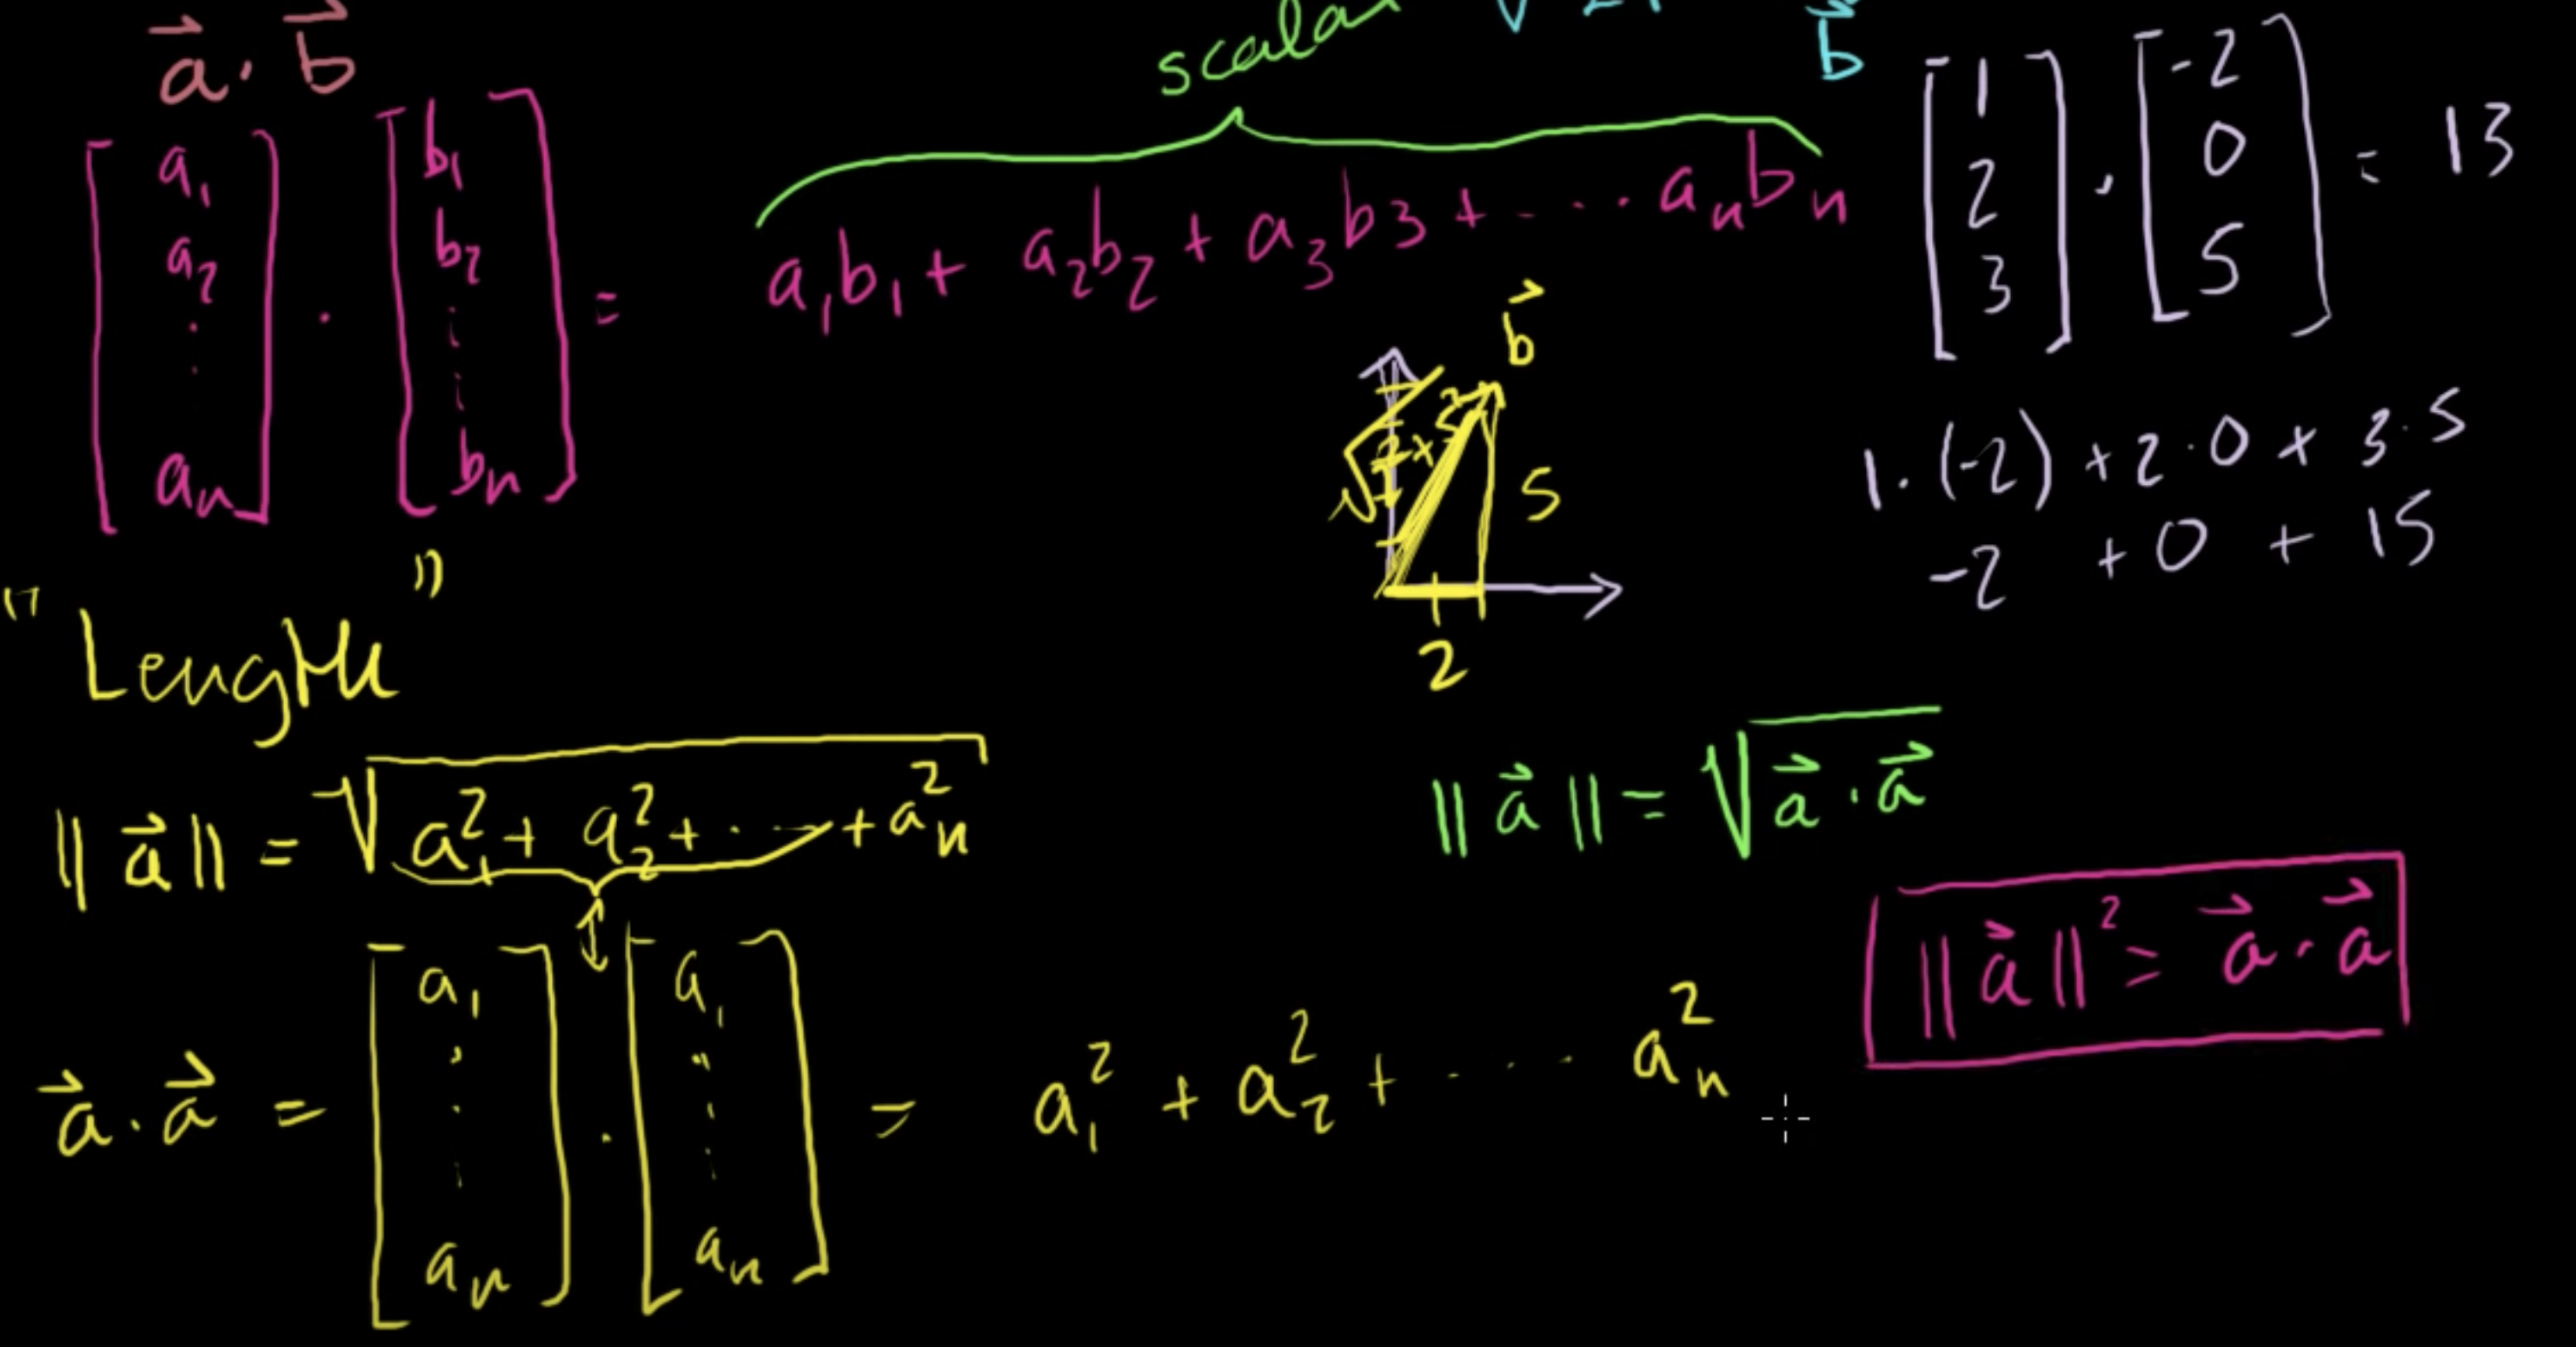 a⃗ · b⃗
scalar
b⃗
[a₁ a₂ ⋮ aₙ] · [b₁ b₂ ⋮ bₙ] = a₁b₁ + a₂b₂ + a₃b3 + ⋯ aₙbₙ
[1 2 3] · [-2 0 5] = 13
1·(-2) + 2·0 + 3·5
-2 + 0 + 15
b⃗
5
2
"Length"
‖a⃗‖ = √(a₁² + a₂² + ⋯ + aₙ²)
‖a⃗‖ = √(a⃗ · a⃗)
‖a⃗‖² = a⃗ · a⃗
a⃗ · a⃗ = [a₁ ⋮ aₙ] · [a₁ ⋮ aₙ] = a₁² + a₂² + ⋯ aₙ²